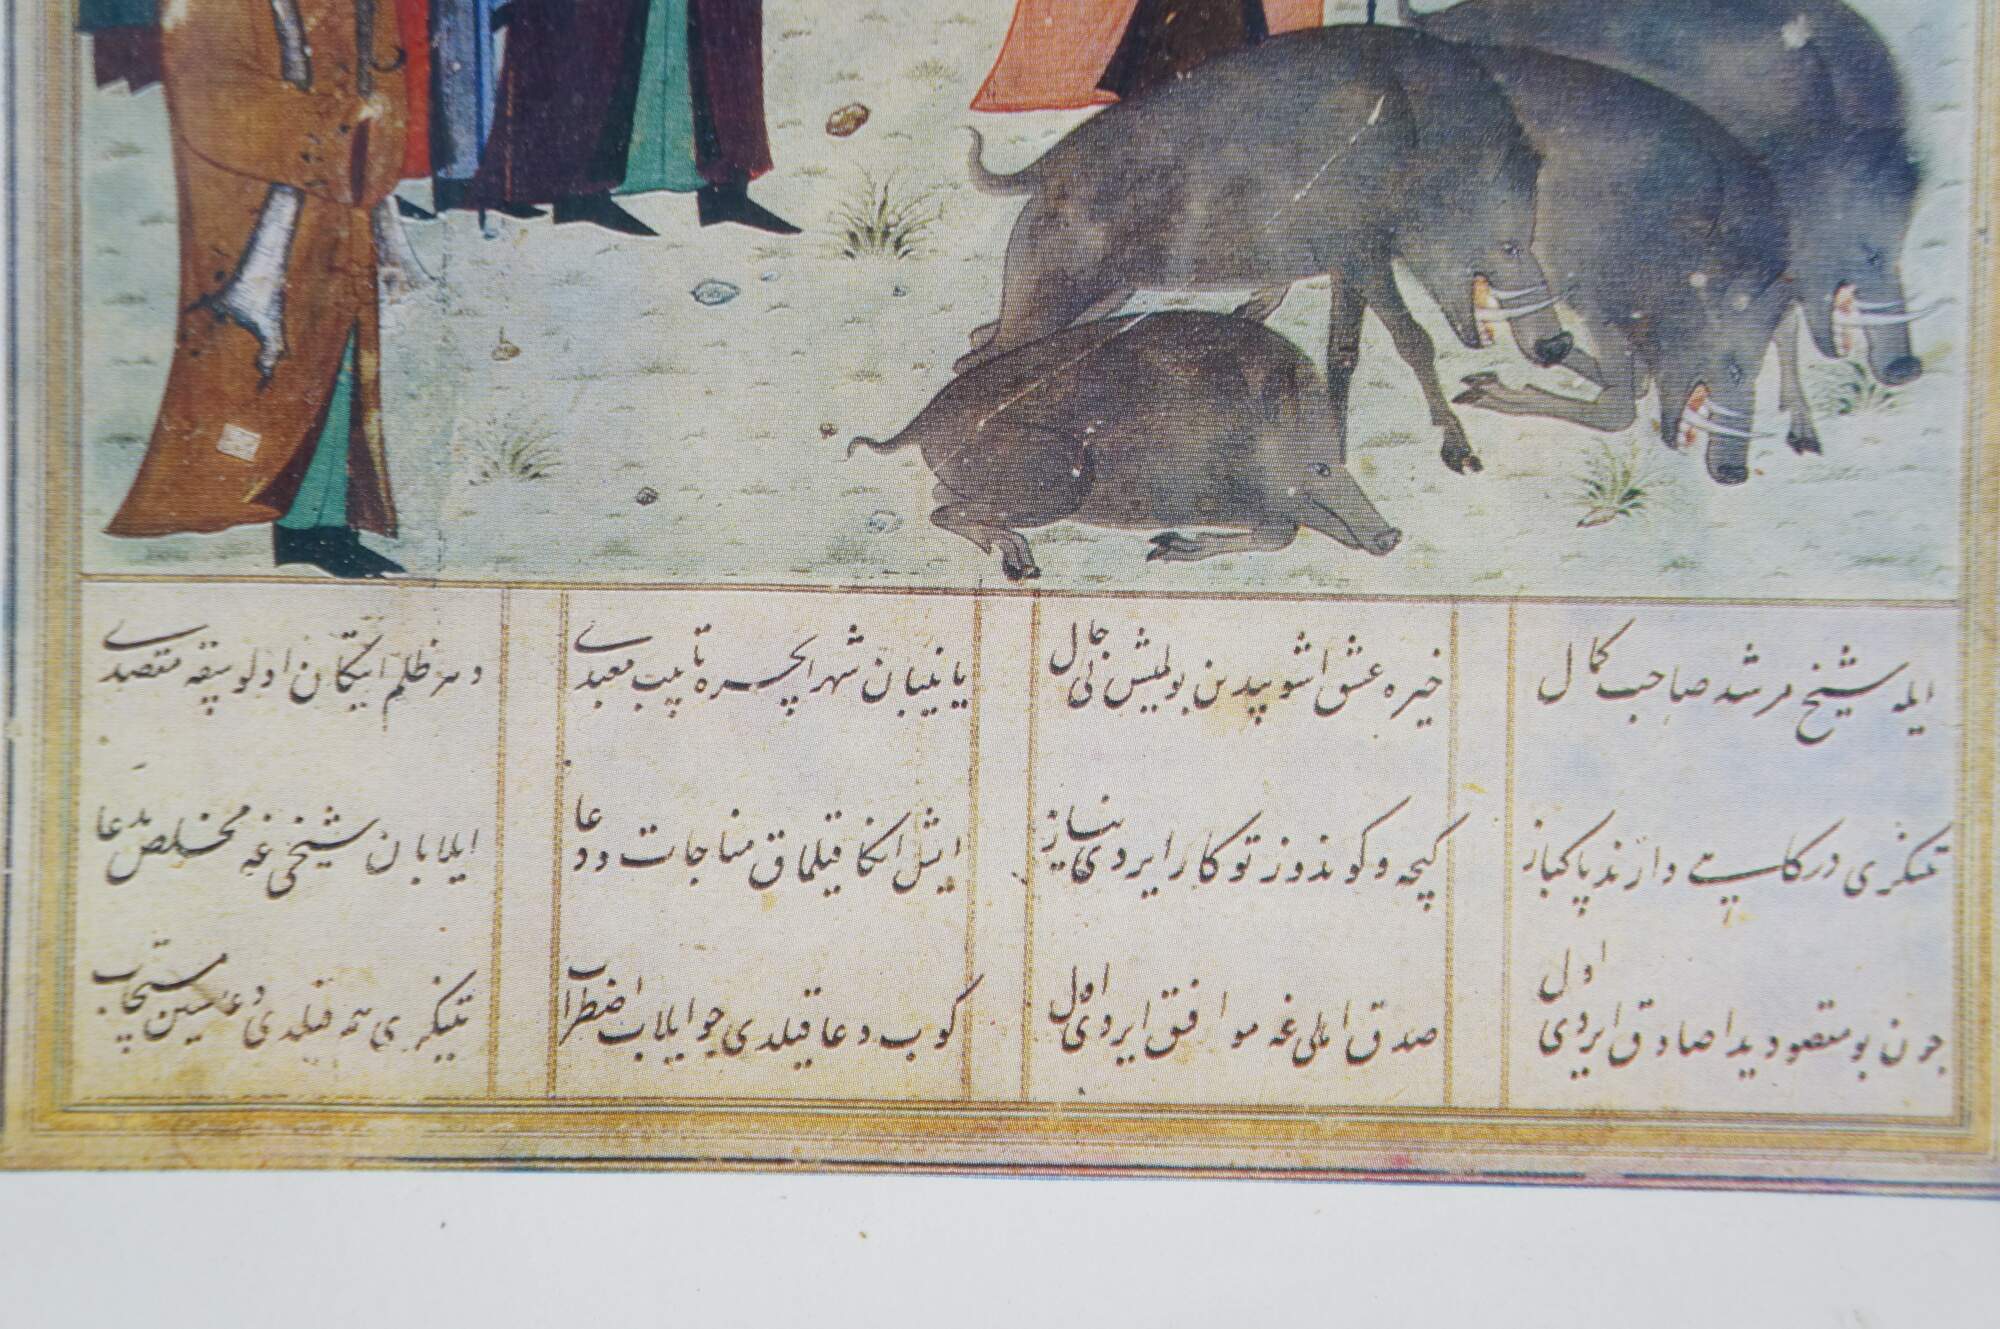 ایله شیخ مرشد صاحب کمال
خیره عشق اشوبیدین بولمیش نی حال
یانیبان شهر ایچره تاپیب معبدی
ظلم ایتکان اولوسقه مقصدی
تنکری درکاهی دا رند پاکباز
کیجه و کوندوز توکار ایردی نیاز
ایش انکا قیلماق مناجات و دعا
ایلابان شیخی غه مخلص دعا
جون بو مقصودیدا صادق ایردی اول
صدق اهلی غه موافق ایردی اول
کوب دعا قیلدی جو ایلاب اضطراب
تنکری هم قیلدی دعاسین مستجاب